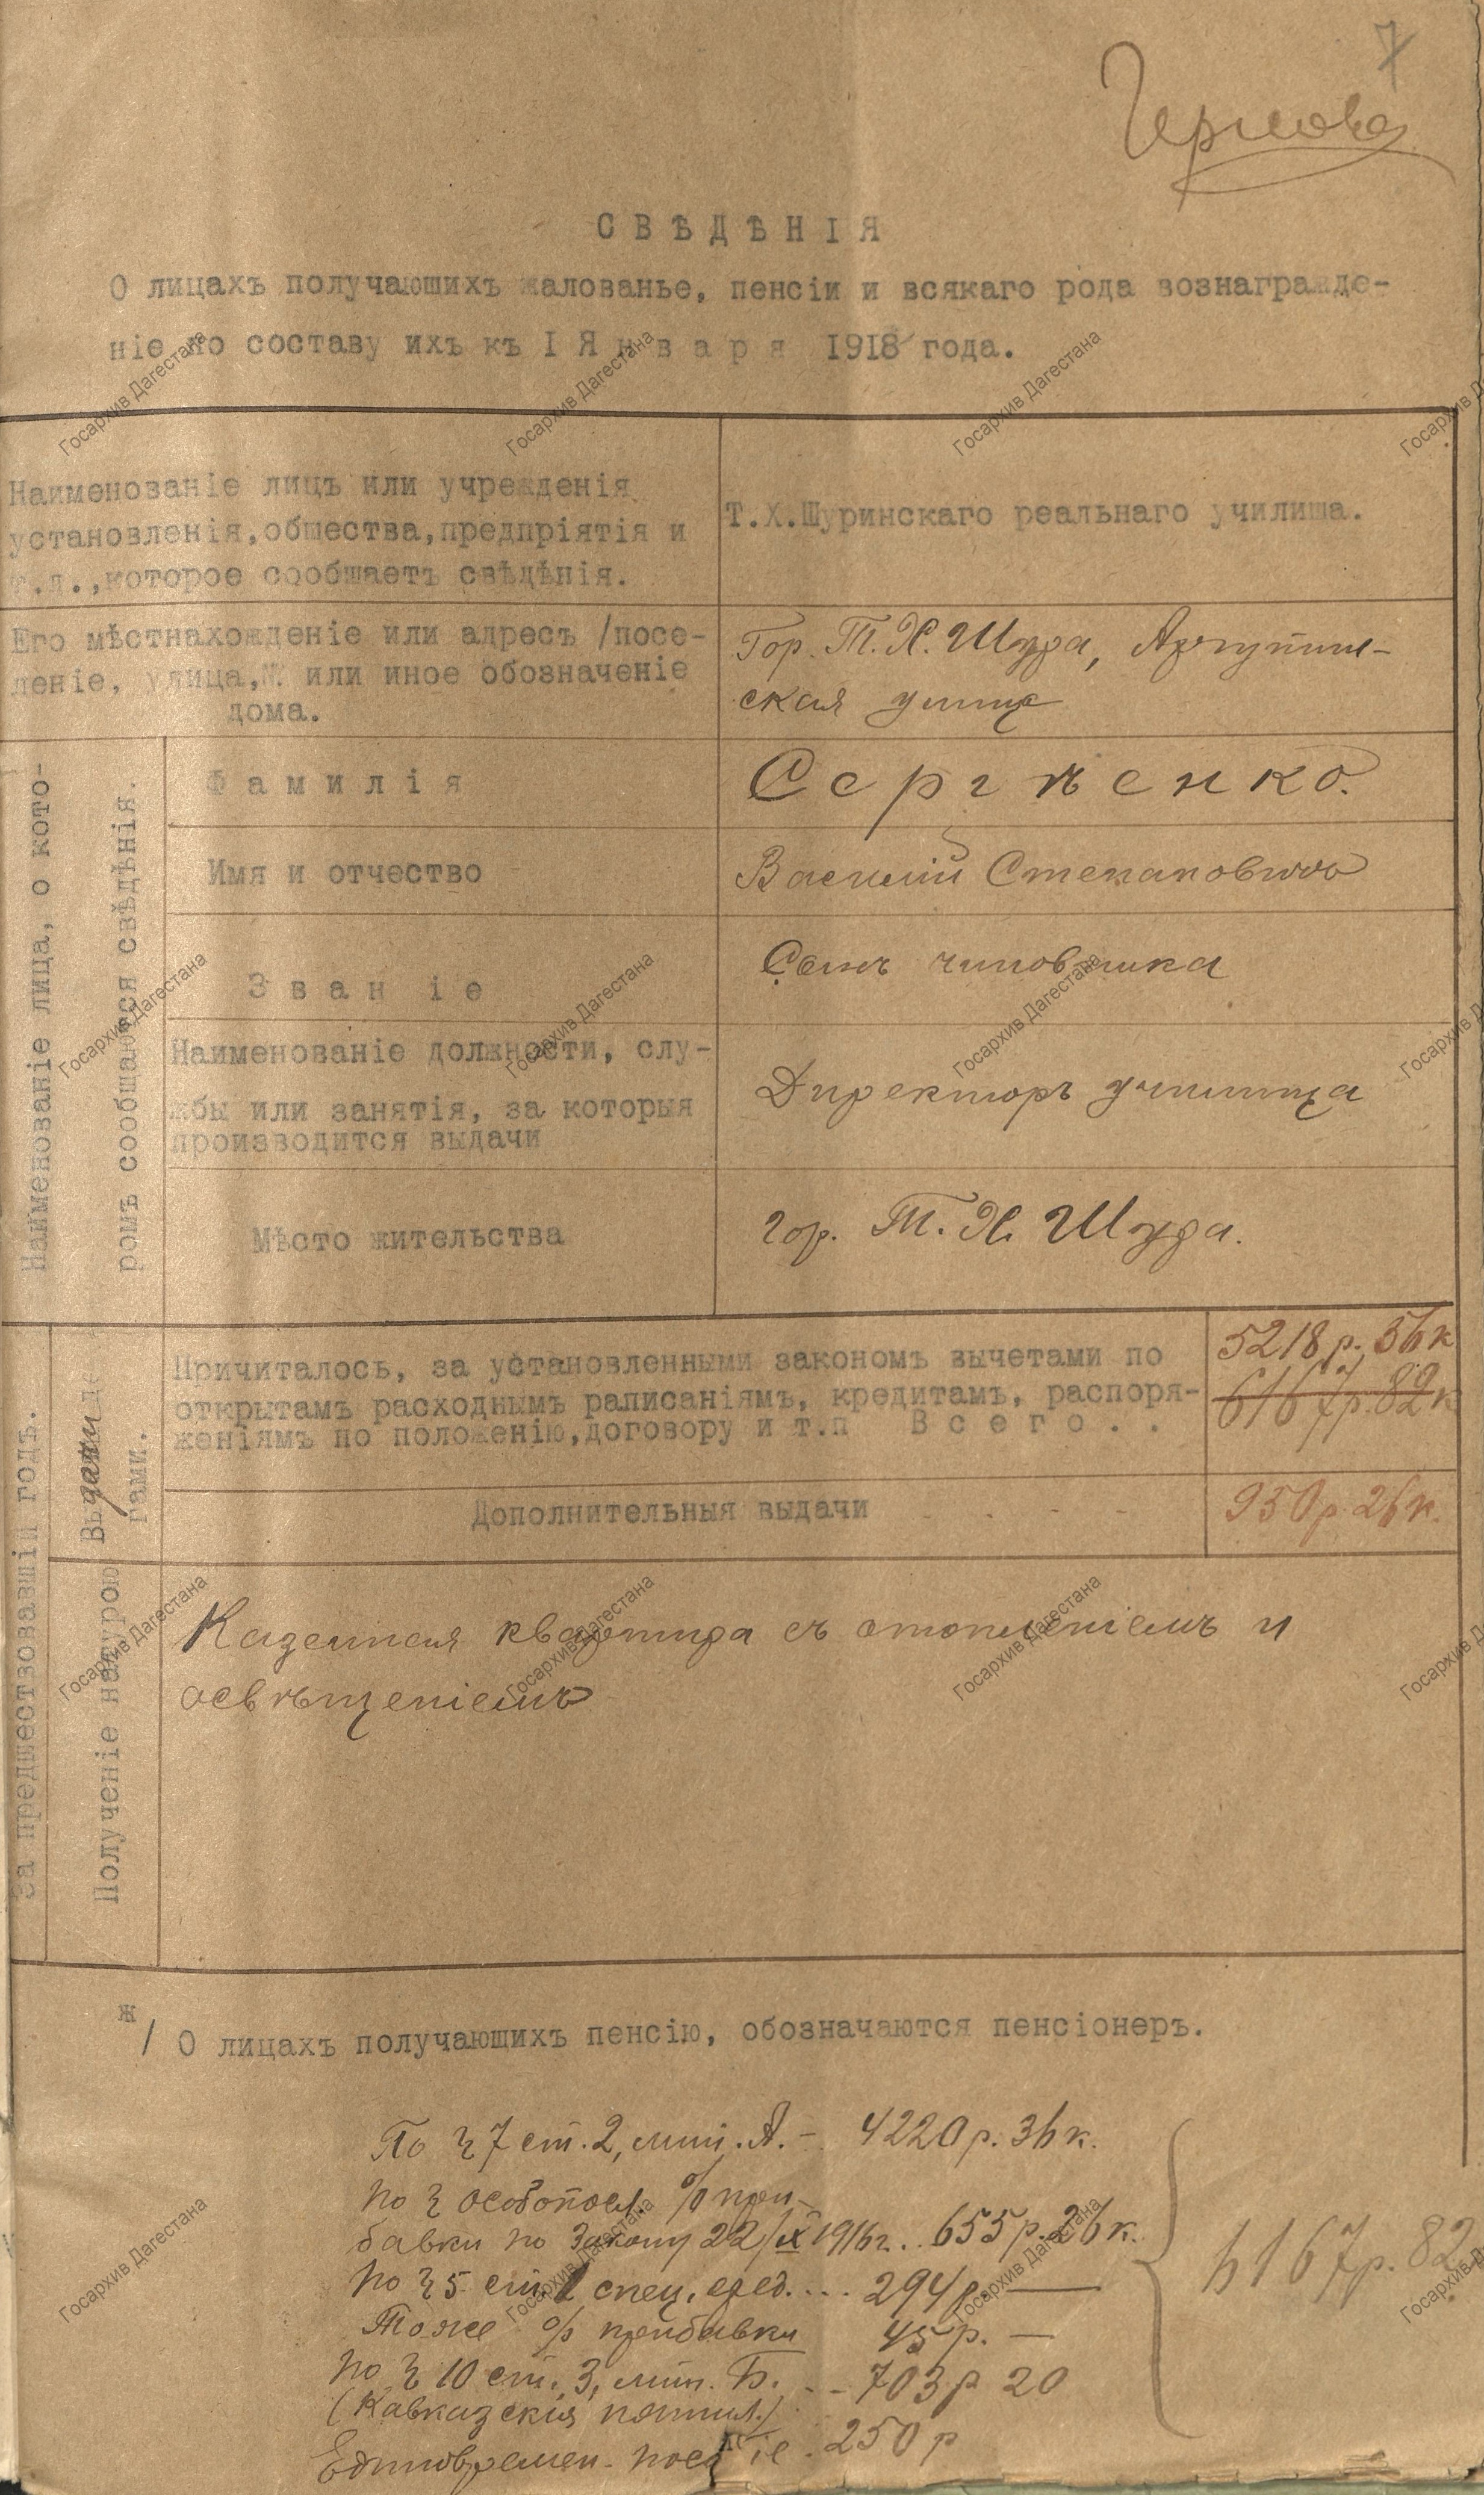 7
СВѢДѢНІЯ
О лицахъ получаюшихъ жалованье, пенсіи и всякаго рода вознагражде-
ніе по составу ихъ къ I Января 1918 года.
Наименованіе лицъ или учрежденія
установленія,обшества,предпріятія и
т.д.,которое сообшаетъ свѣдѣнія.
Т.Х.Шуринскаго реальнаго училиша.
Его мѣстнахожденіе или адресъ /посе-
леніе, улица,№ или иное обозначеніе
дома.
Гор. Т. Х. Шура, Аргутин-
ская улица
Наименованіе лица, о кото-
ромъ сообшаются свѣдѣнія.
Фамилія
Сергѣенко.
Имя и отчество
Василій Степановичъ
Званіе
Сынъ чиновника
Наименованіе должности, слу-
жбы или занятія, за которыя
производится выдачи
Директоръ училища
Мѣсто жительства
гор. Т. Х. Шура.
За предшествовавшій годъ.
Выдачи де
гами.
Причиталось, за установленными закономъ вычетами по
открытамъ расходнымъ раписаніямъ, кредитамъ, распоря-
женіямъ по положенію,договору и т.п Всего . .
5218 р. 56 к
6167 р. 82 к
Дополнительныя выдачи
950 р. 26 к.
Полученіе натурою
Казенная квартира съ отопленіемъ и
освѣщеніемъ
ж/ О лицахъ получающихъ пенсію, обозначаются пенсіонеръ.
По § 7 ст. 2, лит. А. - 4220 р. 36 к.
по § особопосл. % при-
бавки по Закону 22/IX 1916 г. . 655 р. 26 к.
по § 5 ст. 1 спец. сред. ... 294 р. —
Тоже % прибавки 45 р. —
по § 10 ст. 3, лит. Б. . - 703 р 20
(Кавказскія пятил.)
Единовремен. пособіе . 250 р
6167 р. 82
Госархив Дагестана
Госархив Дагестана
Госархив Дагестана
Госархив Дагестана
Госархив Дагестана
Госархив Дагестана
Госархив Дагестана
Госархив Дагестана
Госархив Дагестана
Госархив Дагестана
Госархив Дагестана
Госархив Дагестана